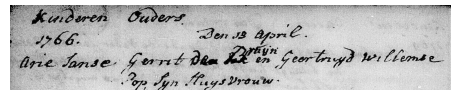 Kinderen Ouders.
1766. Den 13 April.
Arie Janse Gerrit en Geertruyd Willemse
Pop Syn Huysvrouw.